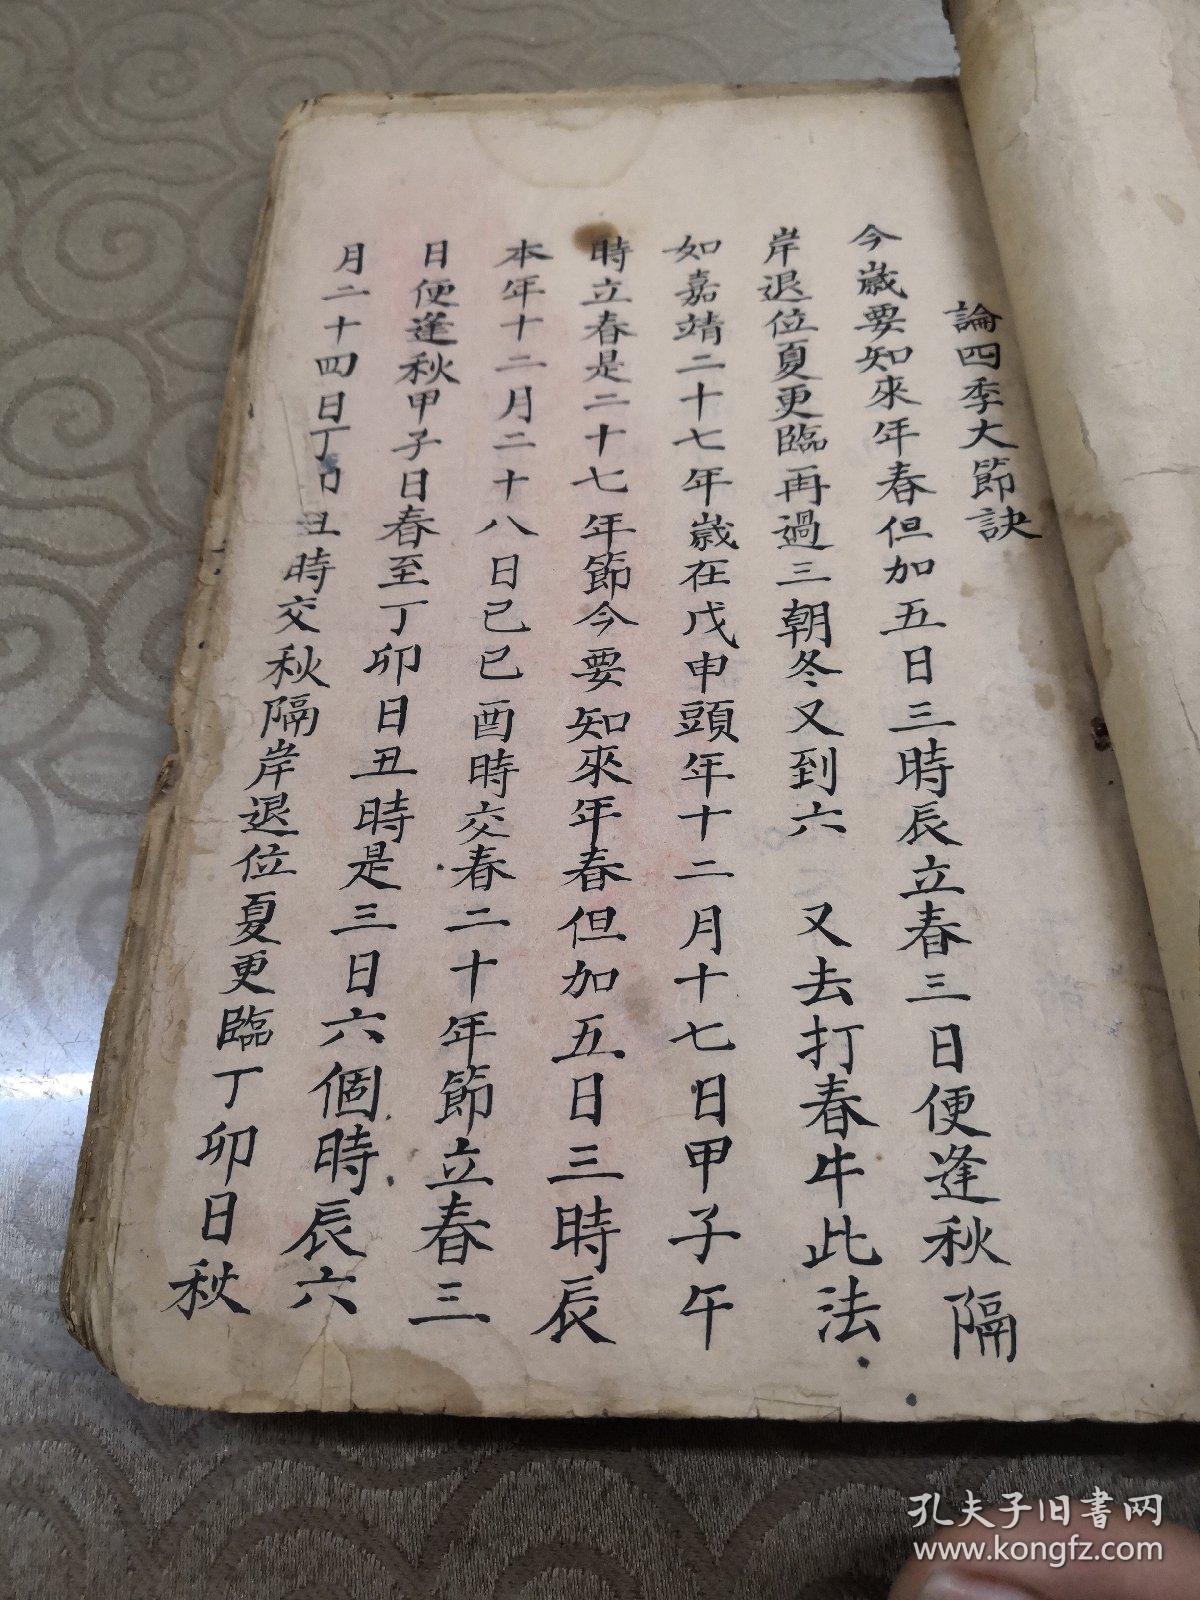 論四季大節訣
今歲要知來年春但加五日三時辰立春三日便逢秋隔
岸退位夏更臨再過三朝冬又到六 又去打春牛此法
如嘉靖二十七年歲在戊申頭年十二月十七日甲子午
時立春是二十七年節今要知來年春但加五日三時辰
本年十二月二十八日己巳酉時交春二十年節立春三
日便逢秋甲子日春至丁卯日丑時是三日六個時辰六
月二十四日丁卯丑時交秋隔岸退位夏更臨丁卯日秋
孔夫子旧书网
www.kongfz.com